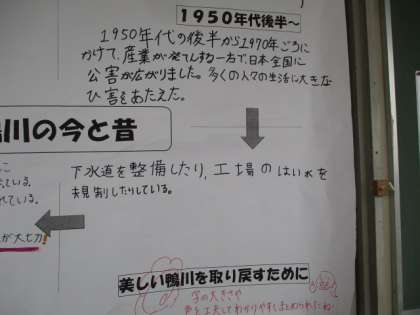 1950年代後半~
1950年代の後半から1970年ごろに
かけて、産業が発てんする一方で、日本全国に
公害が広がりました。多くの人々の生活に大きな
ひ害をあたえた。
鴨川の今と昔
下水道を整備したり、工場のはい水を
規制したりしている。
ている。
れている。
が大切!
美しい鴨川を取り戻すために
字の大きさや